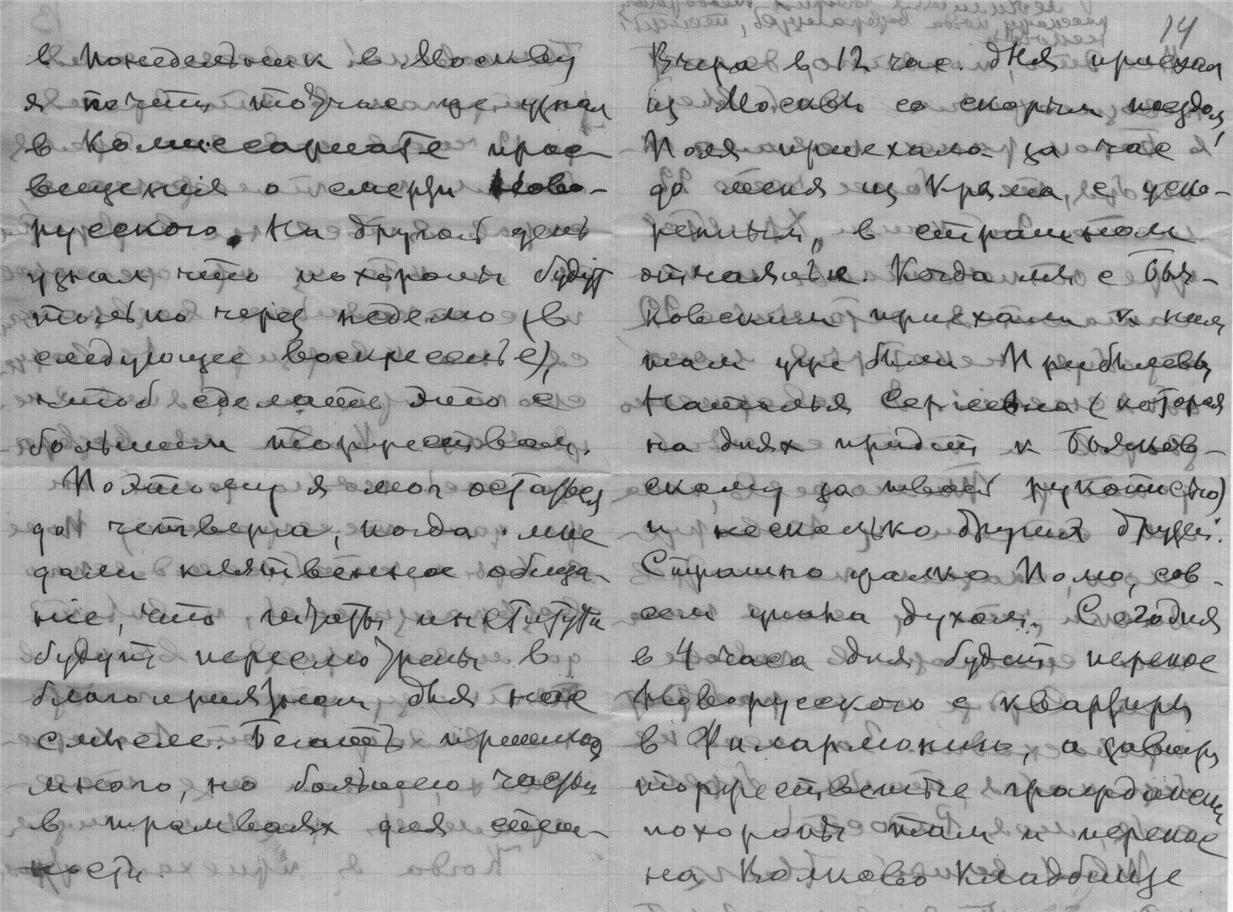 в понедельник в Москву
я почти тотчас же узнал
в Комиссариате прос-
вещения о смерти Ново-
русского. На другой день
узнал что похороны будут
только через неделю (в
следующее воскресенье),
чтоб сделать это с
большим торжеством.
Поэтому я мог остаться
до четверга, когда мне
дали клятвенное обеща-
ніе, что штаты института
будут пересмотрены в
благоприятном для нас
смысле. Бегать пришлось
много, но большею частью
в трамваях для
14
Вчера в 12 час. дня приехал
из Москвы со скорым поездом,
Поля приехала за час
до меня из Крыма, с уско-
ренным, в страшном
отчаянье. Когда мы с Бы-
ковским приехали к ней
там уже были Прибылевы,
Наталья Сергеевна (которая
на днях придет к
за твоей рукописью)
и несколько других друзей.
Страшно жалко Полю, сов-
сем упала духом. Сегодня
в 4 часа дня будет перенос
Новорусского с квартиры
в Филармонию, а завтра
торжественные гражданск
похороны там и перенос
на Волково кладбище